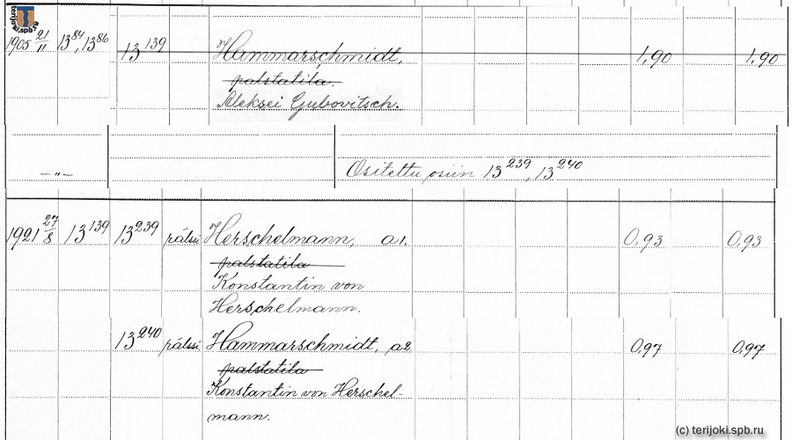 terijoki.spb.ru
1905 21/11 13^84, 13^86 13^139 Hammarschmidt, 1,90 1,90
palstatila.
Aleksei Gubovitsch.
— „ — Ositettu osiin 13^239, 13^240
1921 27/8 13^139 13^239 pälssi Herschelmann, a1. 0,93 0,93
palstatila
Konstantin von
Herschelmann.
13^240 pälssi Hammarschmidt, a2 0,97 0,97
palstatila
Konstantin von Herschel-
mann.
(c) terijoki.spb.ru